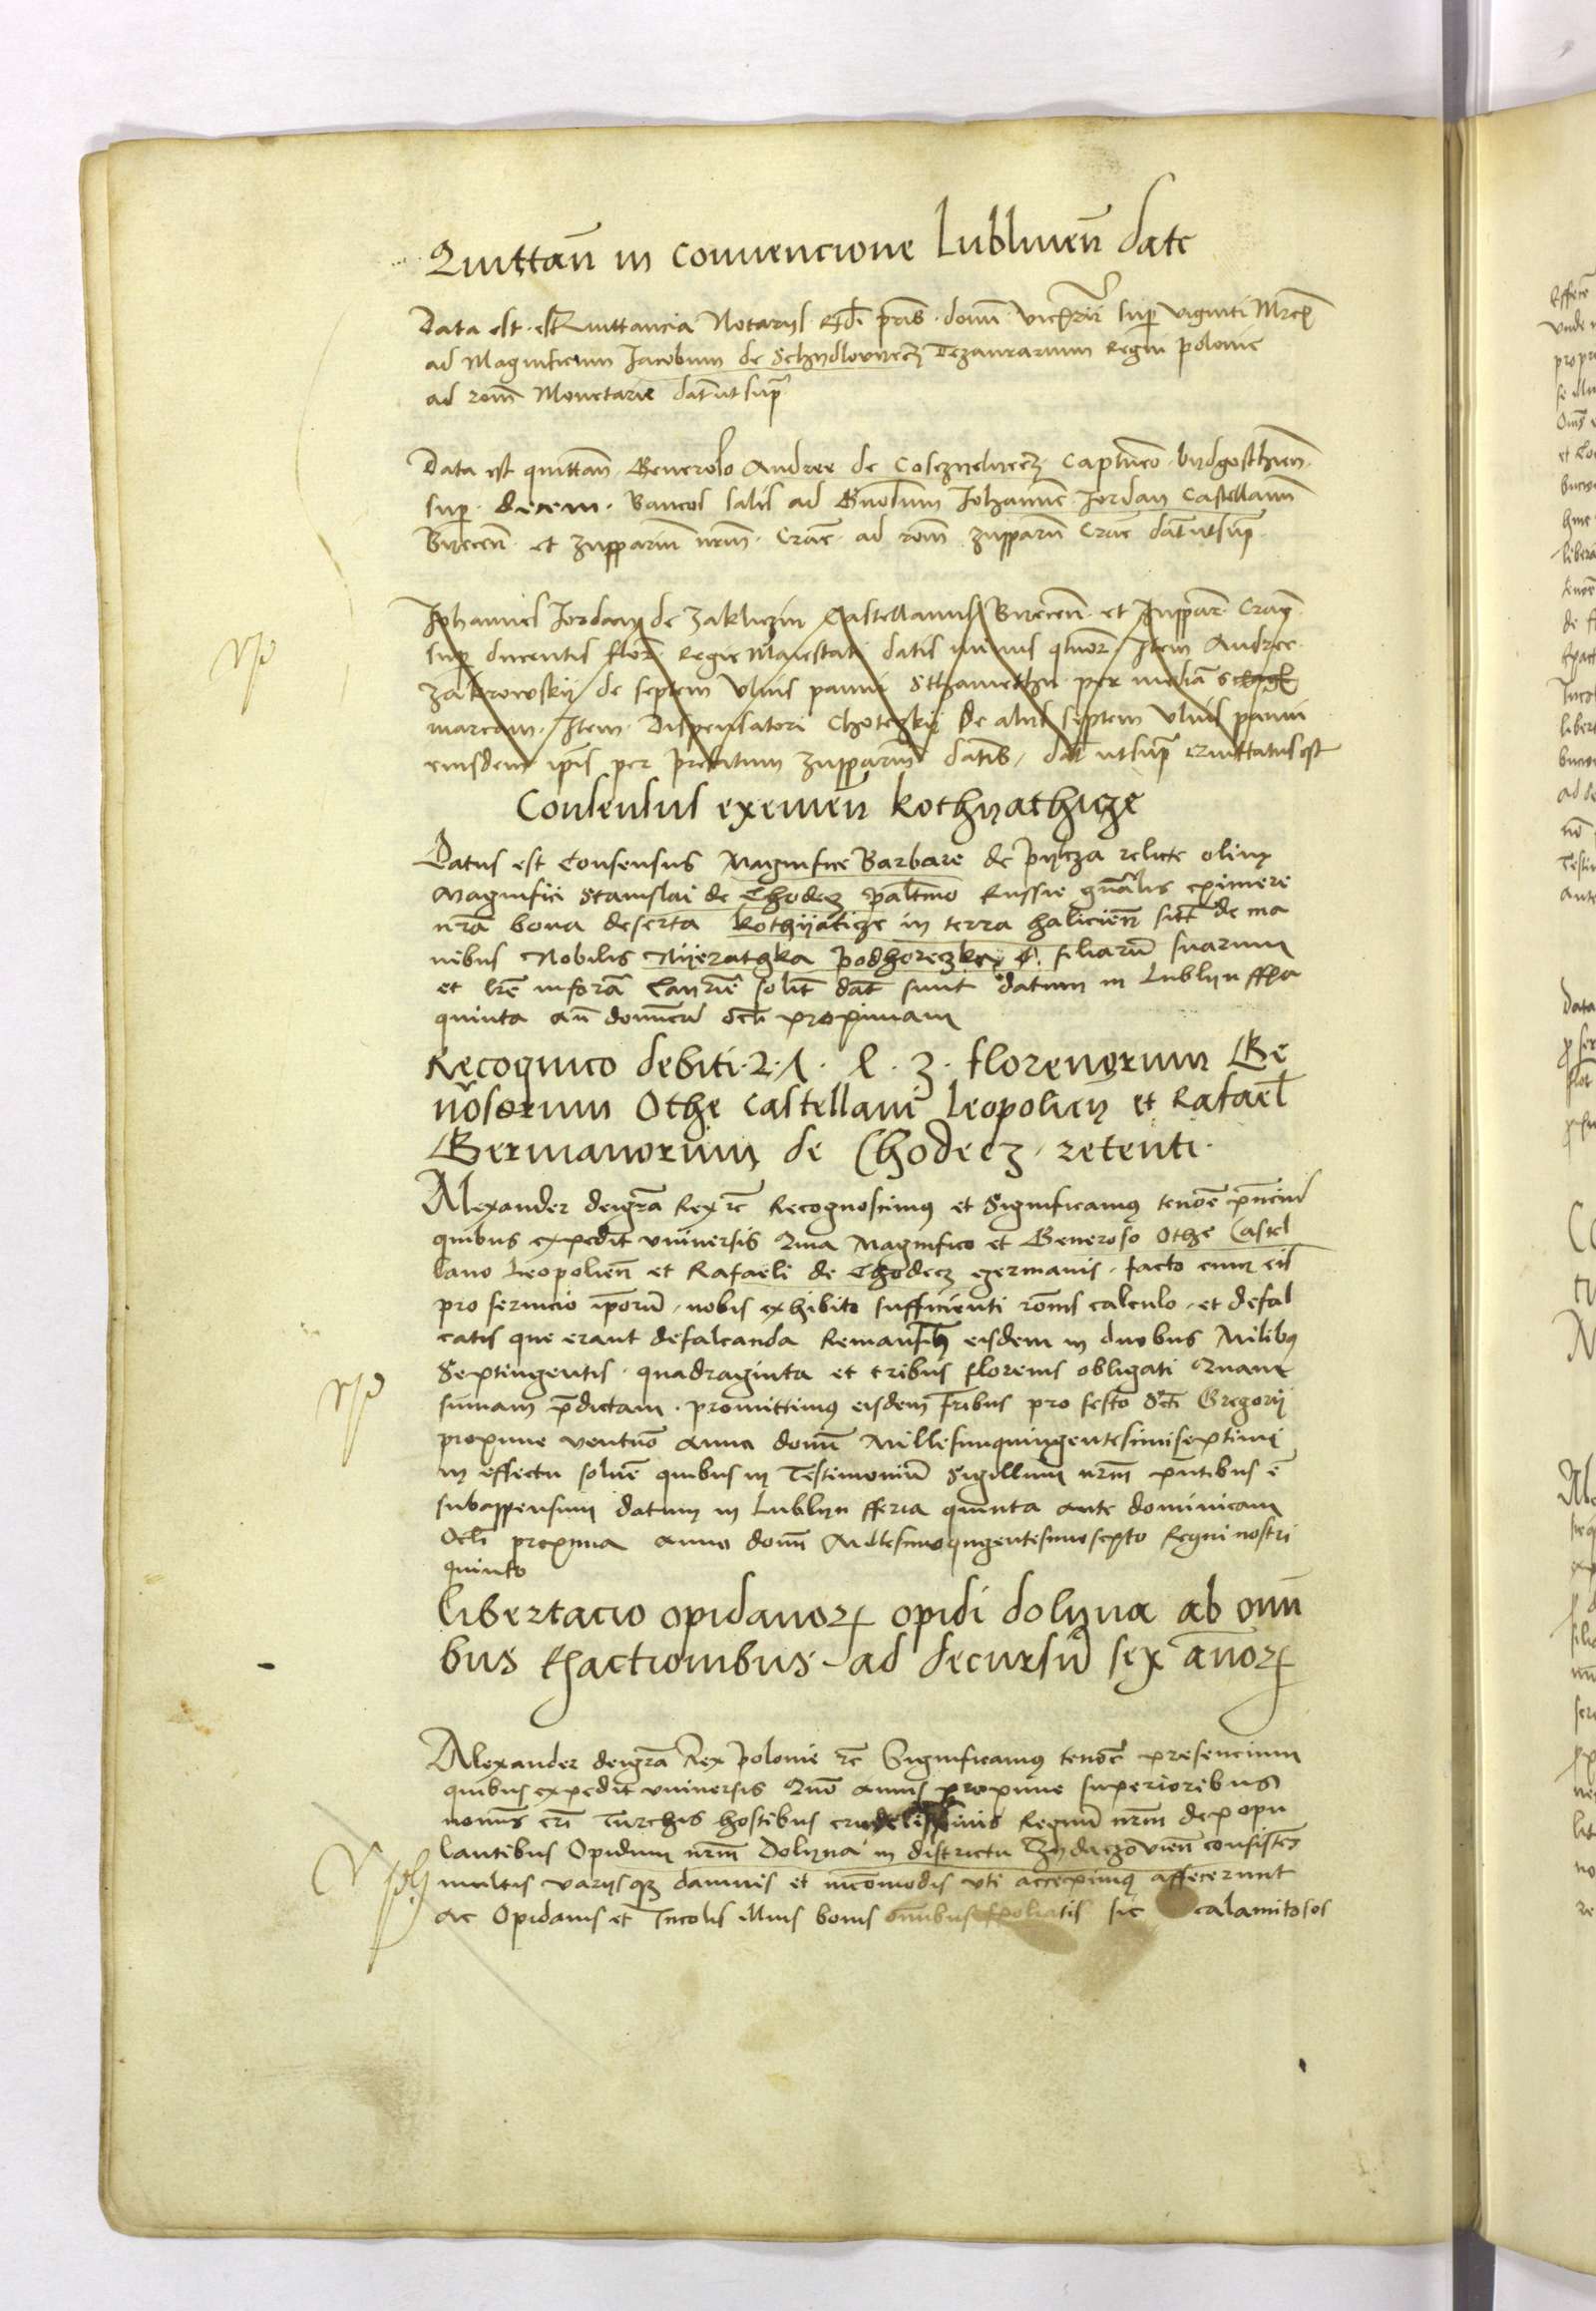 Quittan in convencione Lublinen date
Data est quittancia Notariis Rdi pris domi vicecancri sup viginti Mrcis
ad Magnificum Jacobum de Schydlowyecz Tezaurarium Regni polonie
ad rom Monetarie dat ut supra
Data est quittan Generoso Andree de Cosczyelyecz Capitaneo bydgosthien
sup decem bancos salis ad Gnosum Johannem Jordan Castellanum
Byecen et zupparium nrm Crac ad rom zupparum Crac dat ut supra
Johannes Jordan de Zakliczin Castellanus Byecen et zuppar Crac
sup ducentis flor Regie Maiestati datis minus qtuor Item Andree
Zakrowskij de septem Ulnis panni Sthametthu per mediam
marcam Item Dispensatori Choteczkij de aliis septem Ulnis panni
eiusdem ipsis per prefatum zupparium datis dat ut supra quittatus est
Consensus eximen kothyathicze
Datus est Consensus Magnifice Barbare de pylcza relicte olim
Magnifici Stanislai de Chodecz palatino Russie gnralis eximere
nra bona deserta kothyaticze in terra halicien sita de ma
nibus Nobilis Nyeratgka podhoreczkey et filiarum suarum
et lre in forma Canrie solit dat sunt datum in Lublyn ffia
quinta an domicam Oculi proximam
Recognico debiti 2 . 7 . 4 . 3 . florenorum Ge
nosorum Othe Castellani Leopolien et Rafael
Germanorum de Chodecz retenti
Alexander dei gra Rex etc Recognoscimus et Significamus tenore pncium
quibus expedit universis Quia Magnifico et Generoso Othe Castel
lano Leopolien et Rafaeli de Chodecz germanis facto cum eis
pro servicio iporum nobis exhibito sufficienti ronis calculo et defal
catis que erant defalcanda Remansimus eisdem in duobus Milibus
Septingentis quadraginta et tribus florenis obligati Quam
sumam pdictam promittimus eisdem fribus pro festo Scti Gregorij
proxime venturo Anni domi Millesimiquingentesimiseptimi
in effectu solvere quibus in Testimonium Sigillum nrm pntibus e
subappensum datum in Lublyn fferia quinta ante dominicam
Oculi proxima anno domi Millesimoqngentesimosexto Regni nostri
quinto
Libertacio opidanorum opidi dolyna ab omni
bus Exactionibus ad decursum sex annorum
Alexander dei gra Rex polonie etc Significamus tenore presencium
quibus expedit universis Quo annis proxime superioribus
nominis cri Turchis hostibus crudelissimis Regnum nrm depopu
lantibus Opidum nrm Dolyna in districtu Zydaczovien consistens
multis variisque damnis et incomodis uti accepimus affecerunt
Ac Opidanis et Incolis illius bonis omnibus spoliatis sic calamitosos